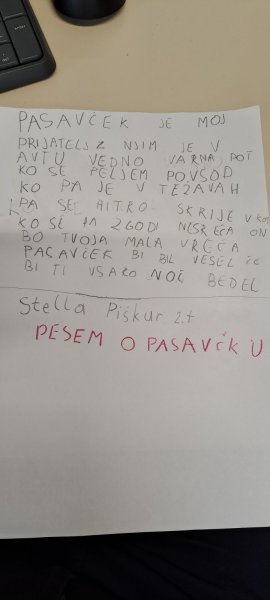 PASAVČEK JE MOJ
PRIJATELJ Z NJIM JE V
AVTU VEDNO VARNA POT
KO SE PELJEM POVSOD
KO PA JE V TEŽAVAH
PA SE HITRO SKRIJE V
KO SE PA ZGODI NESREČA ON
BO TVOJA MALA VREČA
PACAVČEK BI BIL VESEL ČE
BI TI VSAKO NOČ BEDEL
Stella Piškur 2.t
PESEM O PASAVČKU